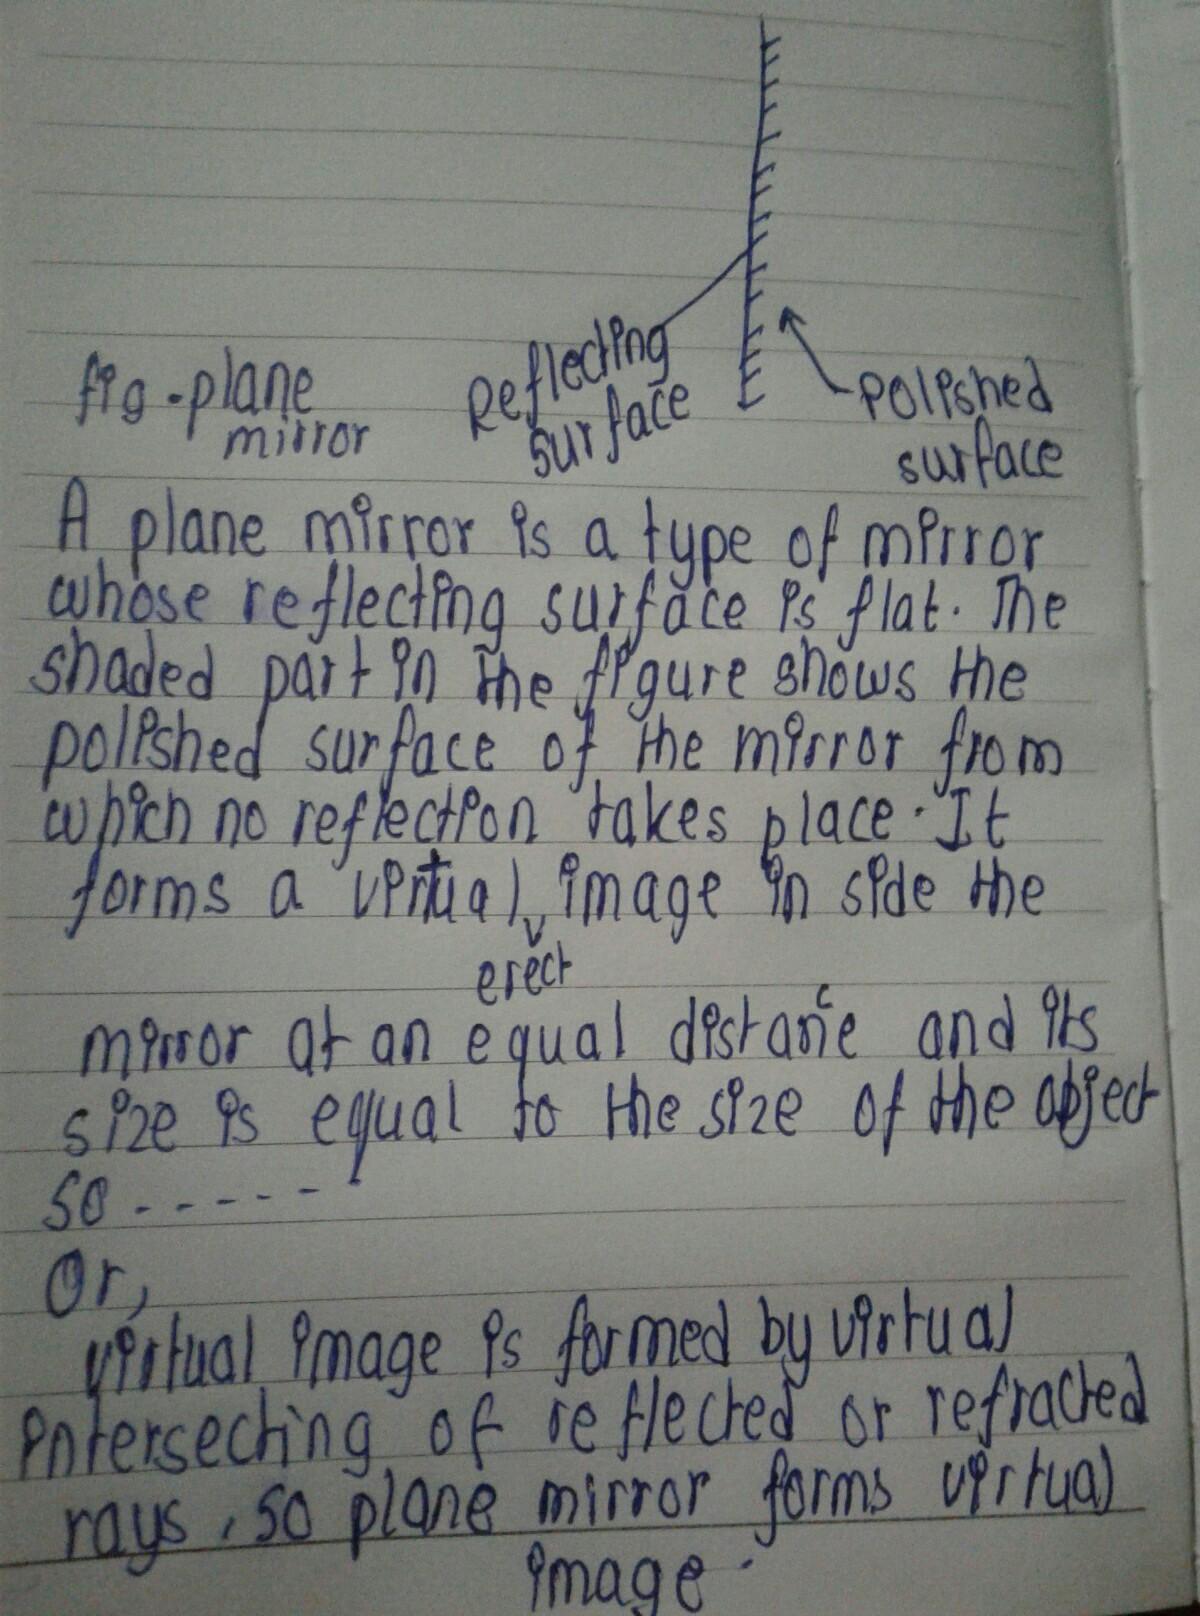 fig-plane
mirror
Reflecting
surface
polished
surface
A plane mirror is a type of mirror
whose reflecting surface is flat. The
shaded part in the figure shows the
polished surface of the mirror from
which no reflection takes place. It
forms a virtual, image in side the
erect
mirror at an equal distance and its
size is equal to the size of the object
so - - - - - -
Or,
virtual image is formed by virtual
intersecting of reflected or refracted
rays, so plane mirror forms virtual
image.